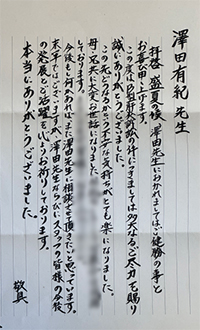 澤田有紀先生
拝啓 盛夏の候、澤田先生におかれましてはご健勝の事と
お喜び申し上げます。
この度は
の件につきましては多大なるご尽力を賜り
誠にありがとうございました。
この先どうなるかという不安な気持ちがとても楽になりました。
母、兄夫に大変お世話になりました
しております。
今後も何かあればまた澤田先生に相談させて頂きたいと思っています。
末筆ではございますが、澤田先生ならびにスタッフの皆様の今後
の発展とご活躍を心よりお祈りしております。
本当にありがとうございました。
敬具